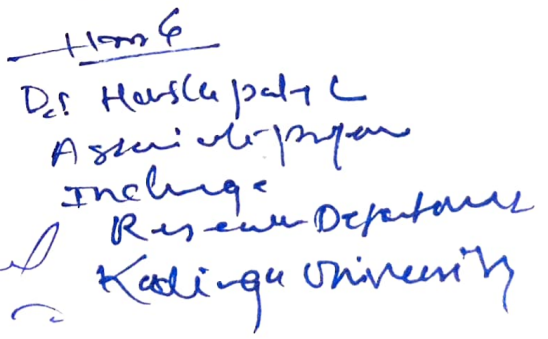 Dr. Harsha patil
Associate professor
Incharge
Research Department
Kalinga University